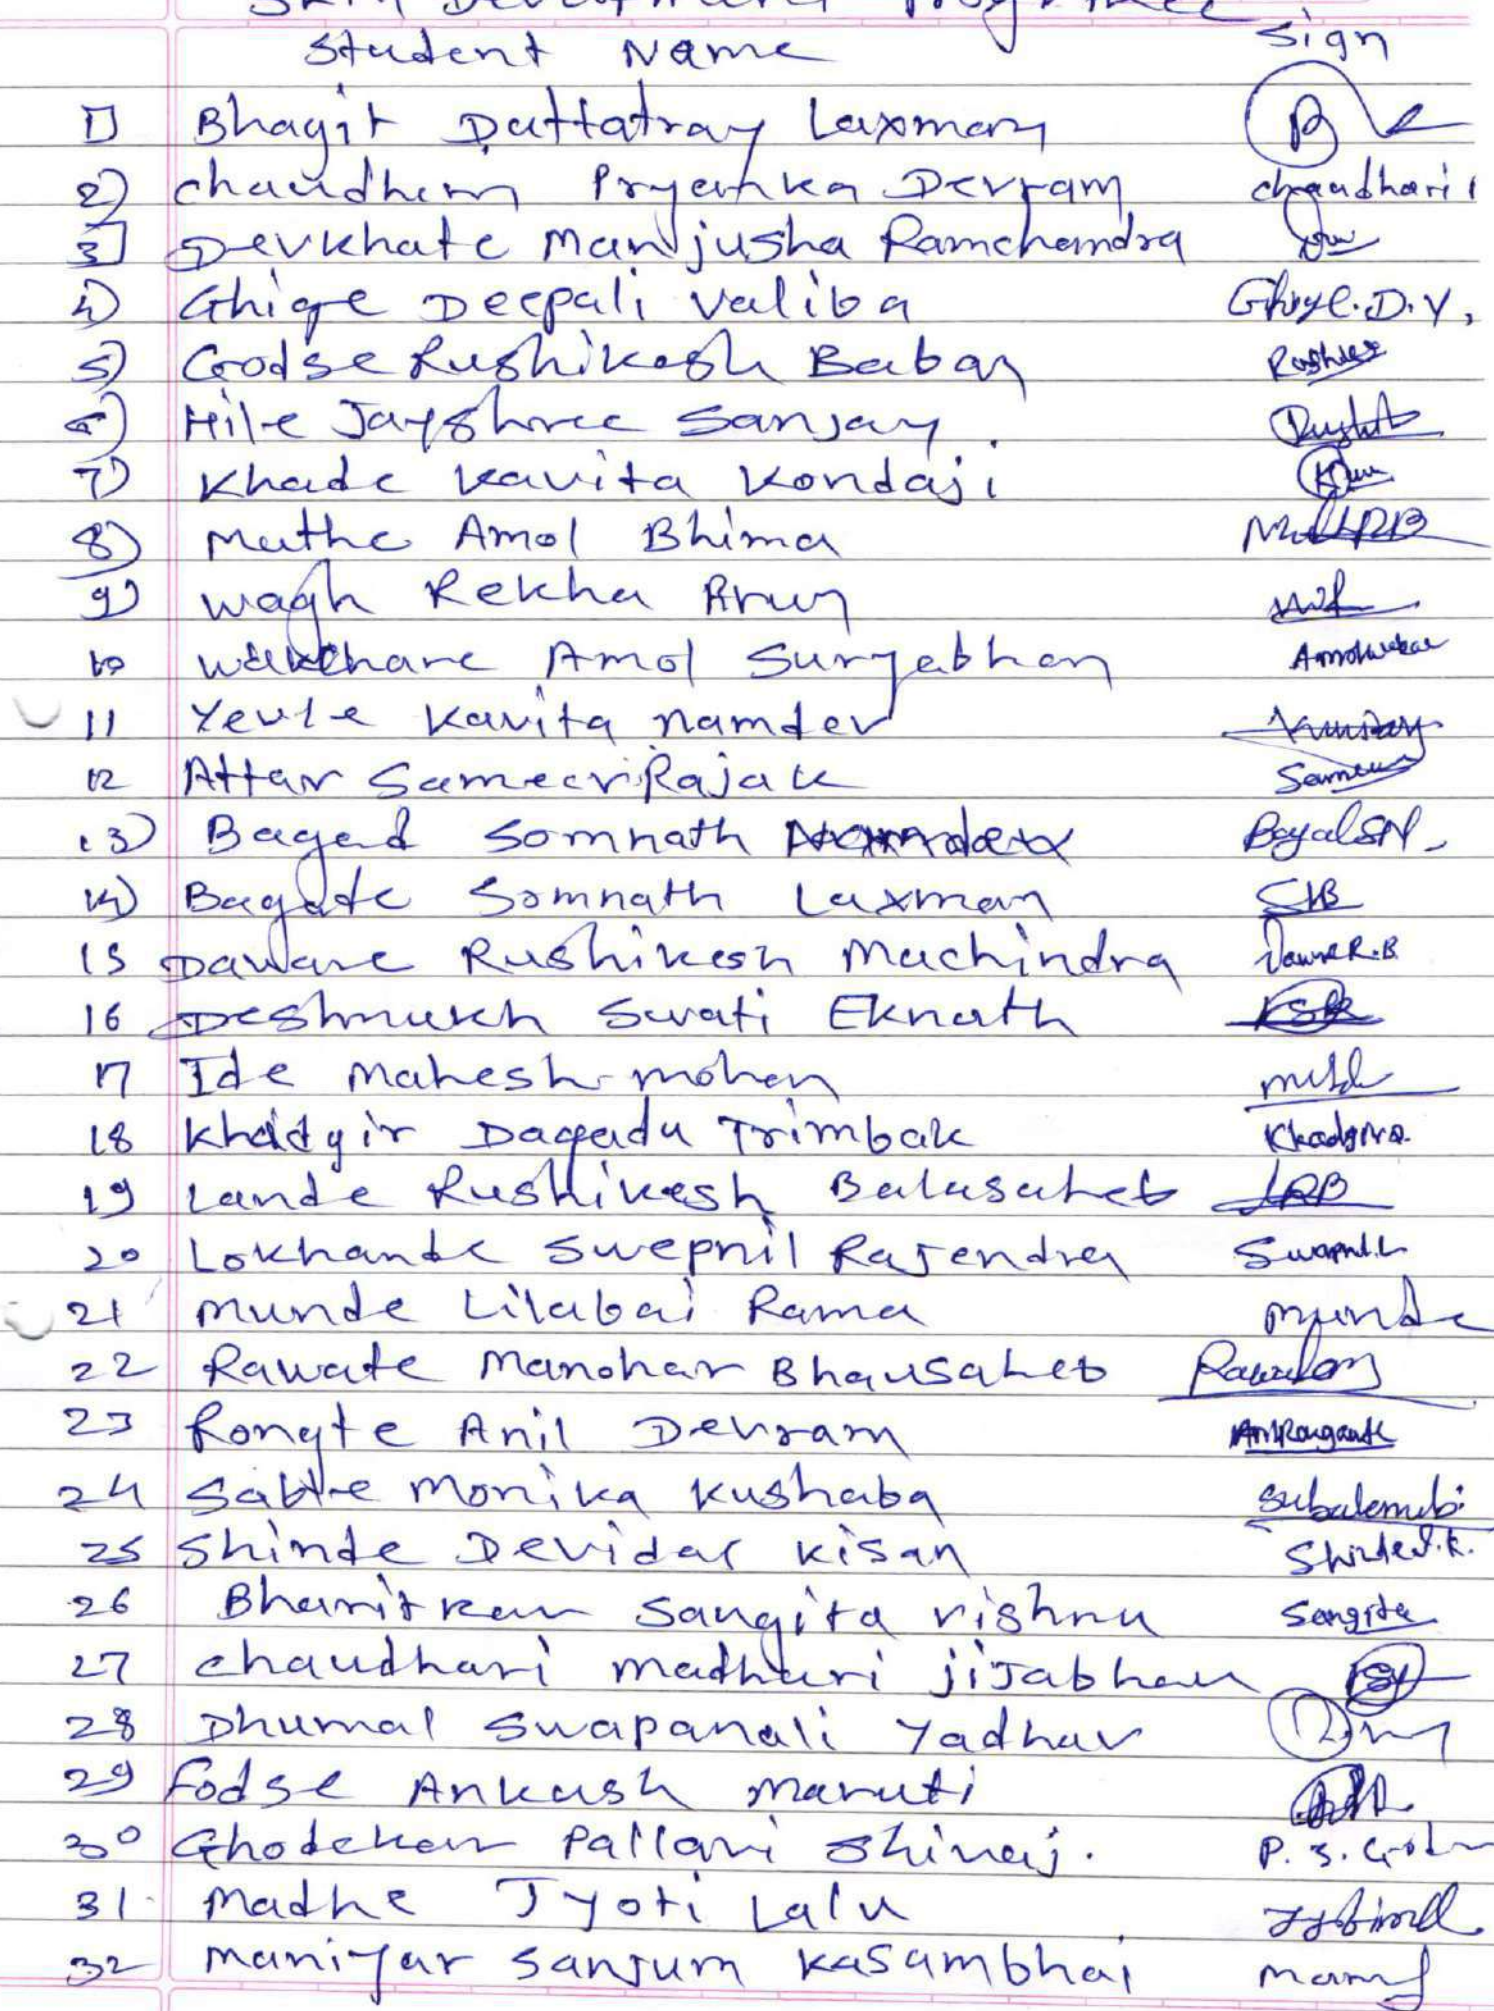 Skill Development Programme
Student Name Sign
1) Bhagit Dattatray Laxman
2) chaudhari Pryanka Devram chaudhari
3) Devkhate Manjusha Ramchandra
4) Ghige Deepali Valiba Ghige.D.V.
5) Godse Rushikesh Baban
6) Hile Jayshree Sanjay.
7) Khade Kavita Kondaji
8) Muthe Amol Bhima
9) wagh Rekha Arun
10 wakchare Amol Suryabhan
11 Yevle Kavita namdev
12 Attar Sameer Rajak Sameer
13) Bagad Somnath Namdev
14) Bagate Somnath Laxman
15 Daware Rushikesh Machindra
16 Deshmukh Swati Eknath
17 Ide Mahesh mohan
18 Khadgir Dagadu Trimbak
19 Lande Rushikesh Balasaheb LRB
20 Lokhande Swapnil Rajendra Swapnil.L
21 munde Lilabai Rama munde
22 Rawate Manohar Bhausaheb
23 Rongte Anil Devram
24 Sable Monika Kushaba
25 Shinde Devidas Kisan Shinde.D.K.
26 Bharitkar Sangita vishnu Sangita
27 chaudhari madhuri jijabhau
28 Dhumal Swapanali Yadhav
29 Fodse Ankush Maruti
30 Ghodekar Pallavi Shivaj.
31 Madhe Jyoti Lalu
32 maniyar Sanjum Kasambhai